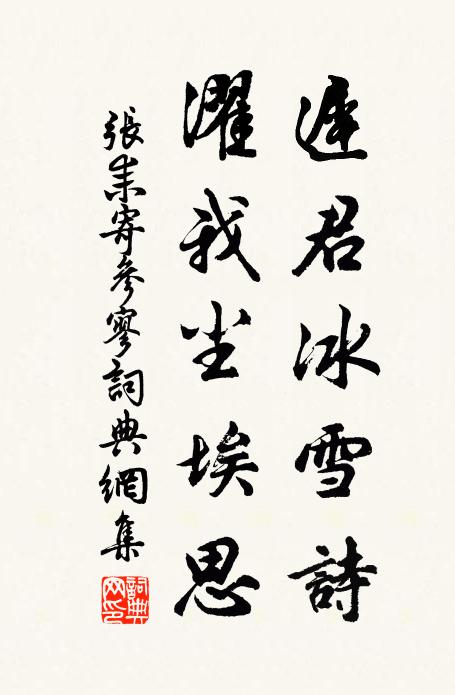 遲君冰雪詩
濯我尘埃思
張耒寄參寥詞典網集
詞典网印